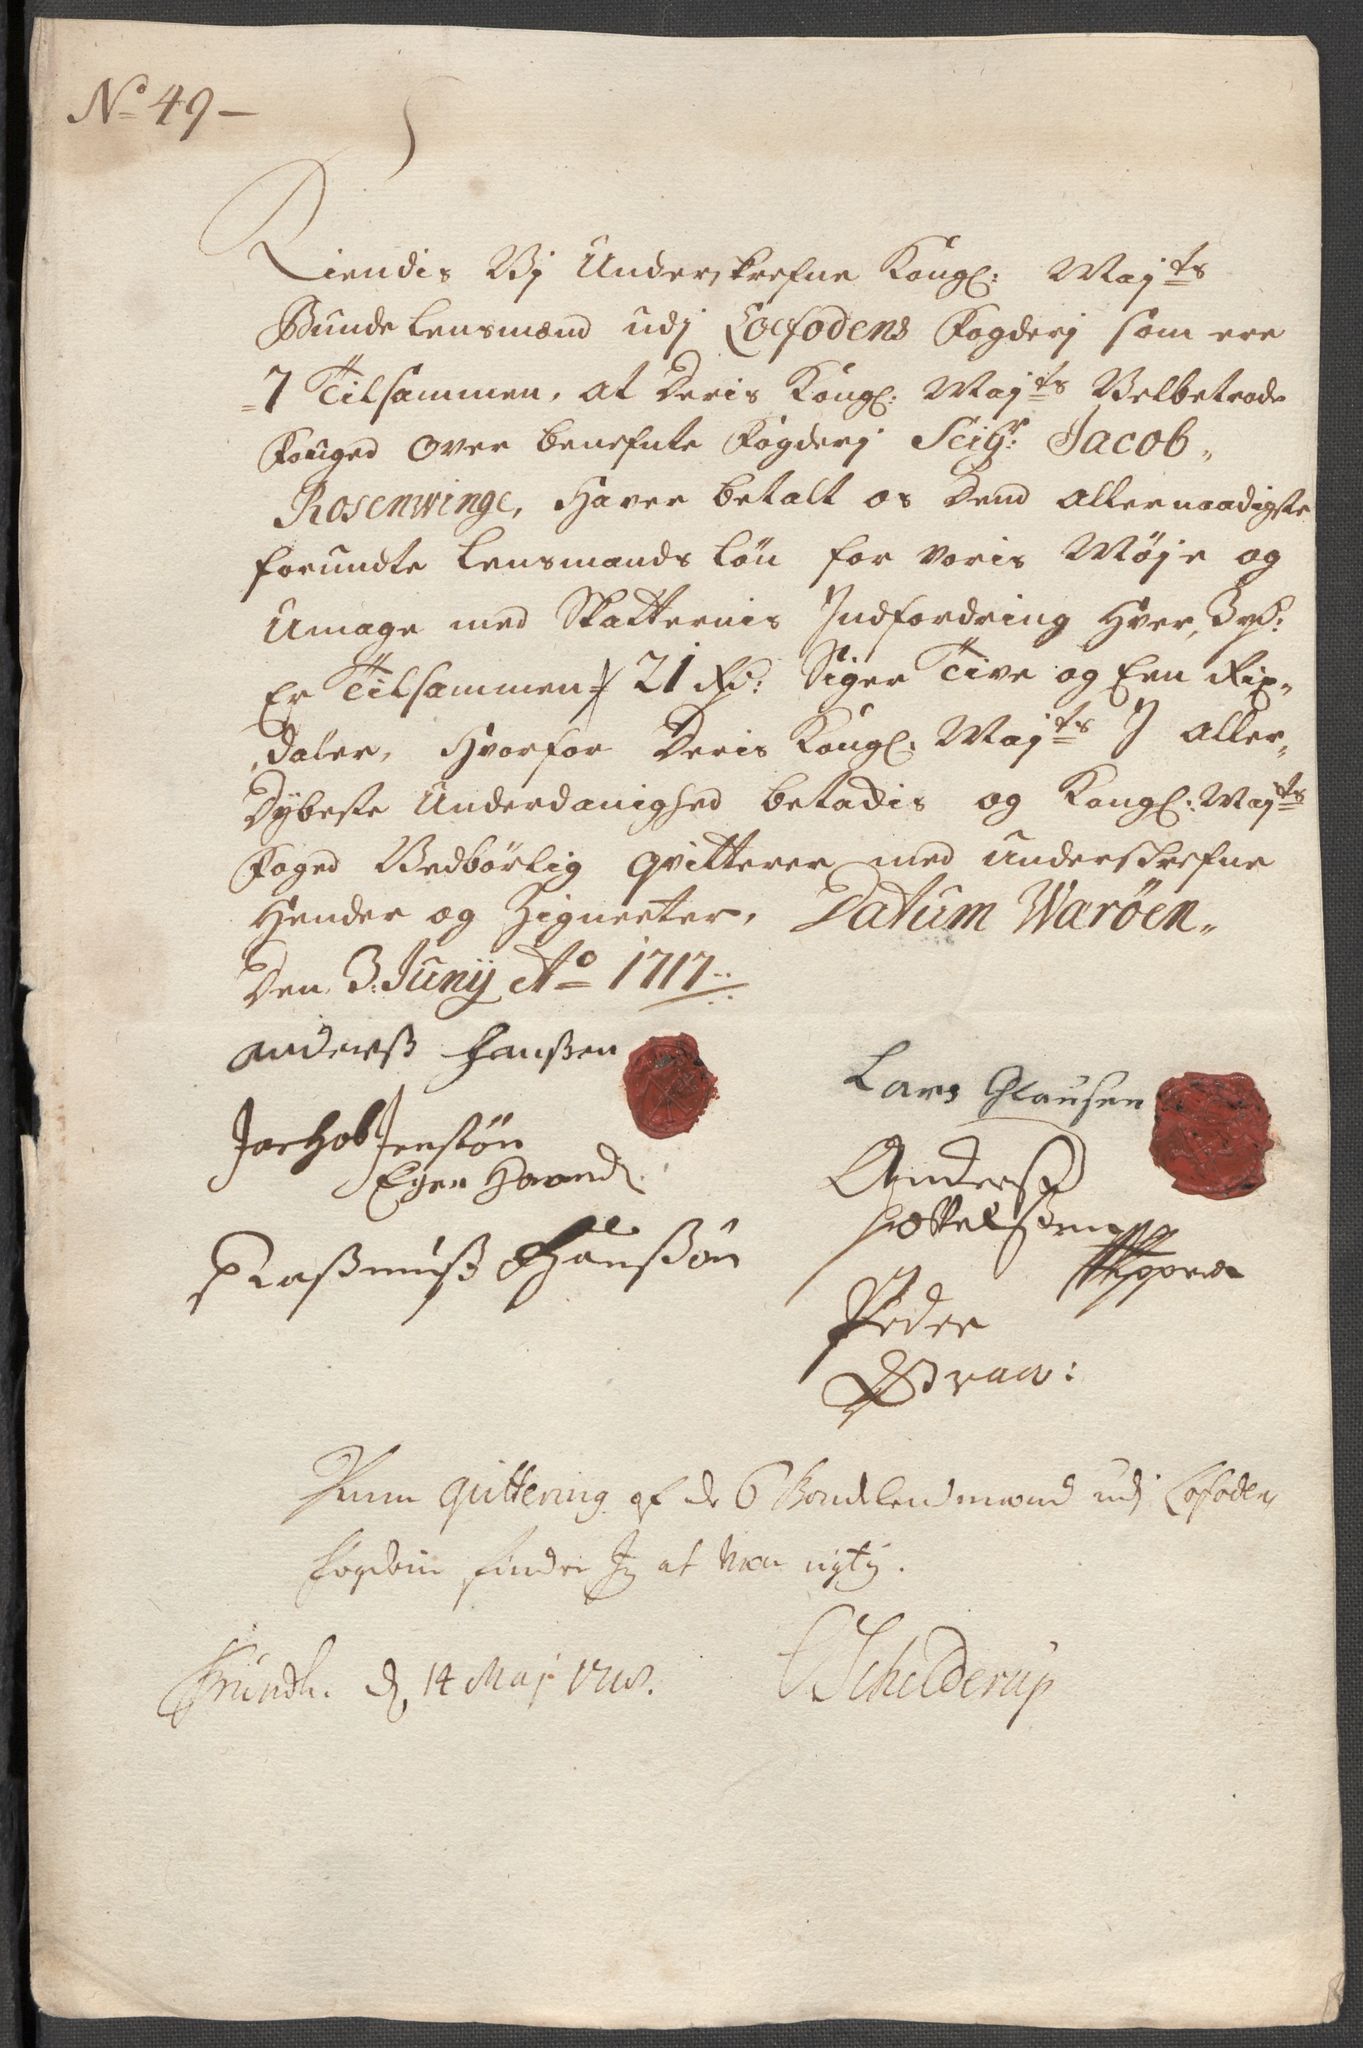 No 49 –
Kiendis Vj Underskrefne Kongl: Majts
Bunde Lensmænd udj Loefodens Fogderj som ere
7 Tilsammen, at Deris Kongl: Majts Velbetrode
Fouged over benefnte Fogderj Seigr: Jacob
Rosenwinge, Haver betalt os Dend allernaadigste
forundte Lensmands Løn for voris Møje og
Umage med Skatternis Indfordring Hver, 3 rd:
Er Tilsammen 21 Rd: Siger Tive og Een Rix-
daler, Hvorfor Deris Kongl: Majts J aller-
Dybeste Underdanighed betackis og Kongl: Majts
Foged Vedbørlig qvitterer med underskrefne
Hender og Zigneeter, Datum Warøen
Den 3: Junij Ao 1717
anderss Hanssen
Lars Clausen
Jachob Jensøn
Egen Haand
Anderss
Rassmuss Hanssøn
Peder
Denne quittering af de 6 Bondelensmænd udj Lofodens
Fogderie finder Jeg at være rigtig.
Trundh. d. 14 Maj 1718.
Schelderup